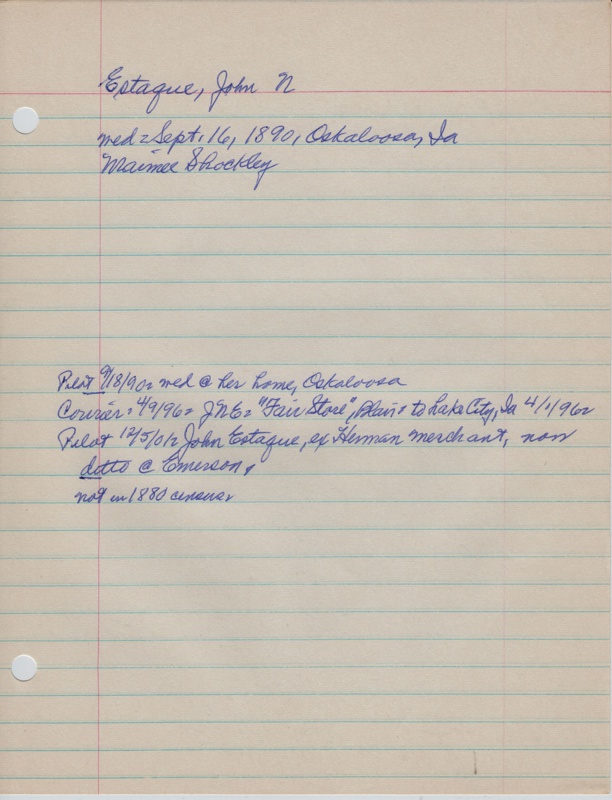 Estaque, John N
wed = Sept. 16, 1890, Oskaloosa, Ia
Maimee Shockley
Pilot 9/18/90 = wed @ her home, Oskaloosa
Courier = 4/9/96 = JNE = "Fair Store", Blair = to Lake City, Ia 4/1/96 =
Pilot 12/5/01 = John Estaque, ex Herman merchant, now
ditto @ Emerson.
not in 1880 census.